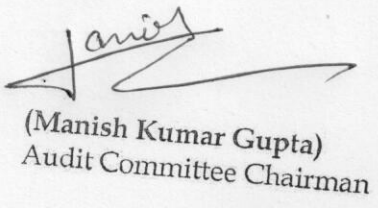 (Manish Kumar Gupta)
Audit Committee Chairman